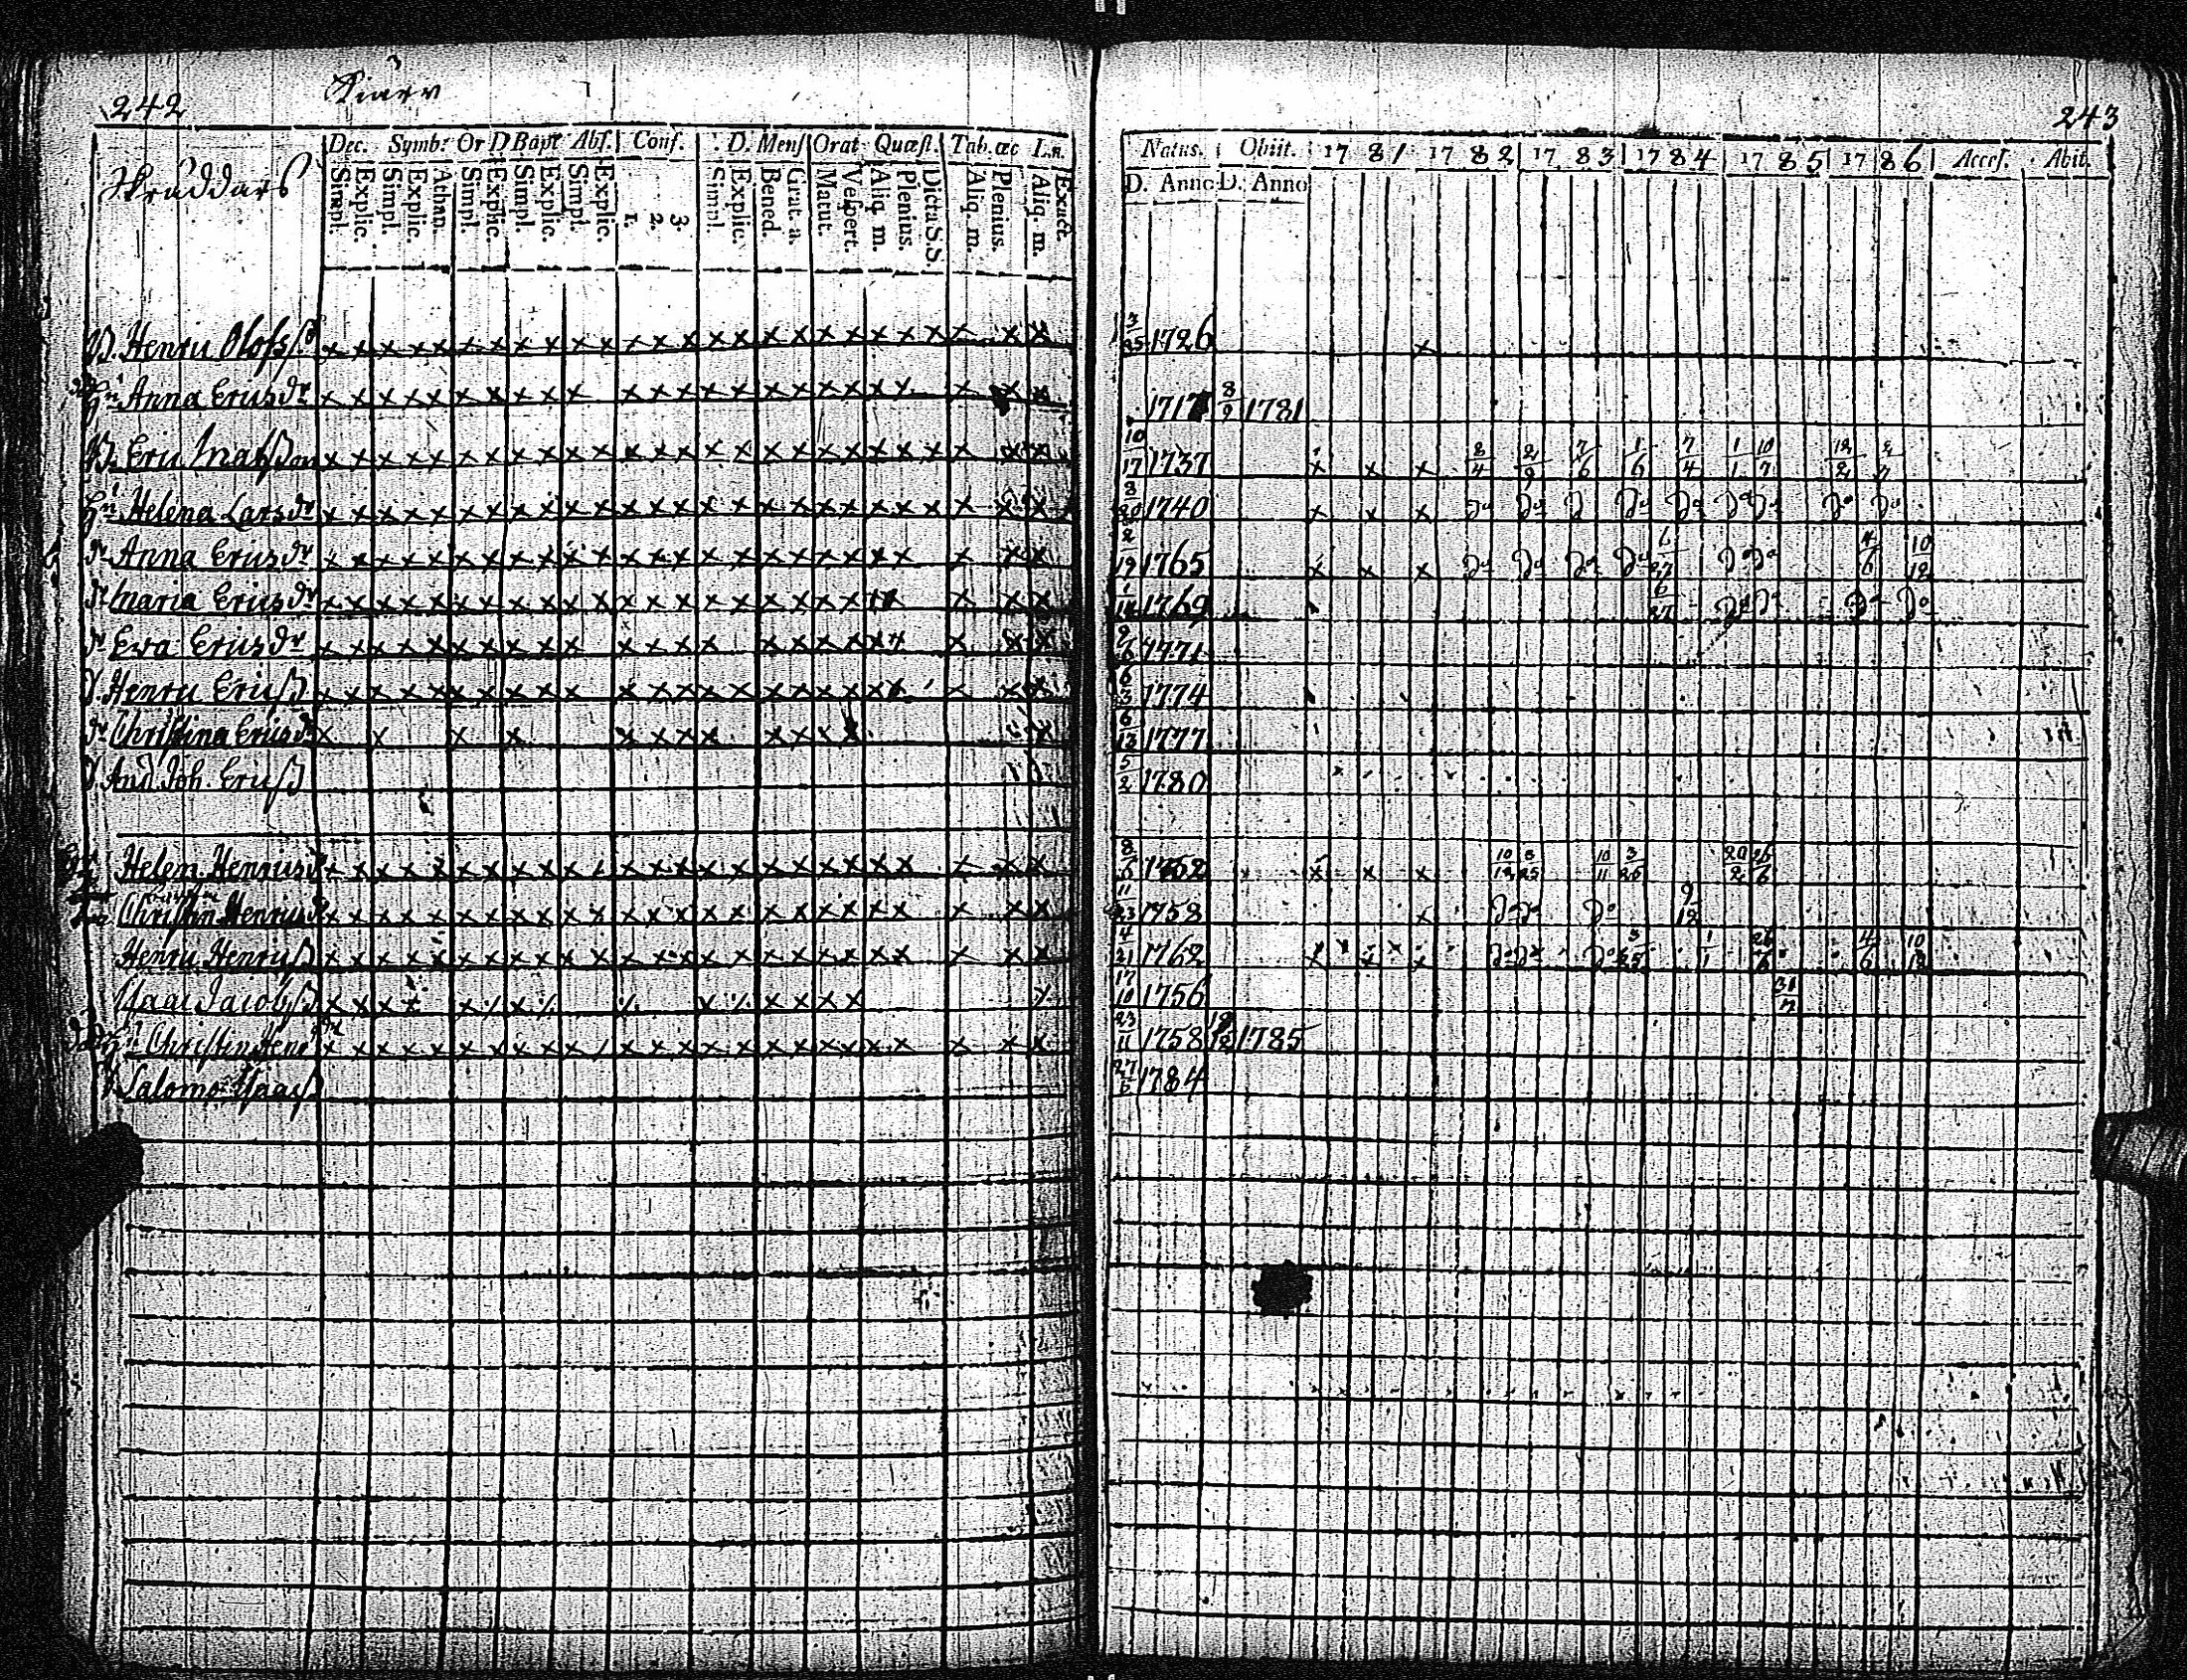 242
Dec. Symb: Or D Bapt Abs. Conf. D. Mens Orat Quæst. Tab. œc L.n.
Skräddars
Simpl. Explic. Simpl. Explic. Athan. Simpl. Explic. Simpl. Explic. Simpl. Explic. 1. 2. 3. Simpl. Explic. Bened. Grat. a. Matut. Vespert. Aliq. m. Plenius. Dicta S.S. Aliq. m. Plenius. Aliq. m. Exact.
Henric Olofss
Anna Ericsdr
Eric Matsson
Helena Larsdr
dr Anna Ericsdr
dr Maria Ericsdr
dr Ewa Ericsdr
Henric Ericss
dr Christina Ericsdr
And. Joh. Ericss
Helen Henricsd
Christin Henricsd
Henric Henricss
Isaac Jacobss
Christin Hen
Salomo Isaacss
243
Natus. Obiit. 1781 1782 1783 1784 1785 1786 Access. Abit.
D. Anno D. Anno
3/25 1726 x
1717 8/9 1781
10/17 1737 x x x 8/4 2/9 7/6 1/6 7/4 1/1 10/7 12/2
8/20 1740 x x x Do Do Do Do Do Do Do Do Do
2/19 1765 x x x Do Do Do Do 6/27 Do Do 4/6 10/12
1769 6/27 Do Do Do Do
1771
6/3 1774
6/13 1777
5/2 1780
1752 x x x 10/12 3/25 10/11 3/25 20/2 26/6
11/23 1758 x Do Do Do 9/12
4/21 1762 x x x Do Do Do 3/25 1/1 26/6 4/6 10/12
17/10 1756 31/7
23/11 1758 1785
27/5 1784